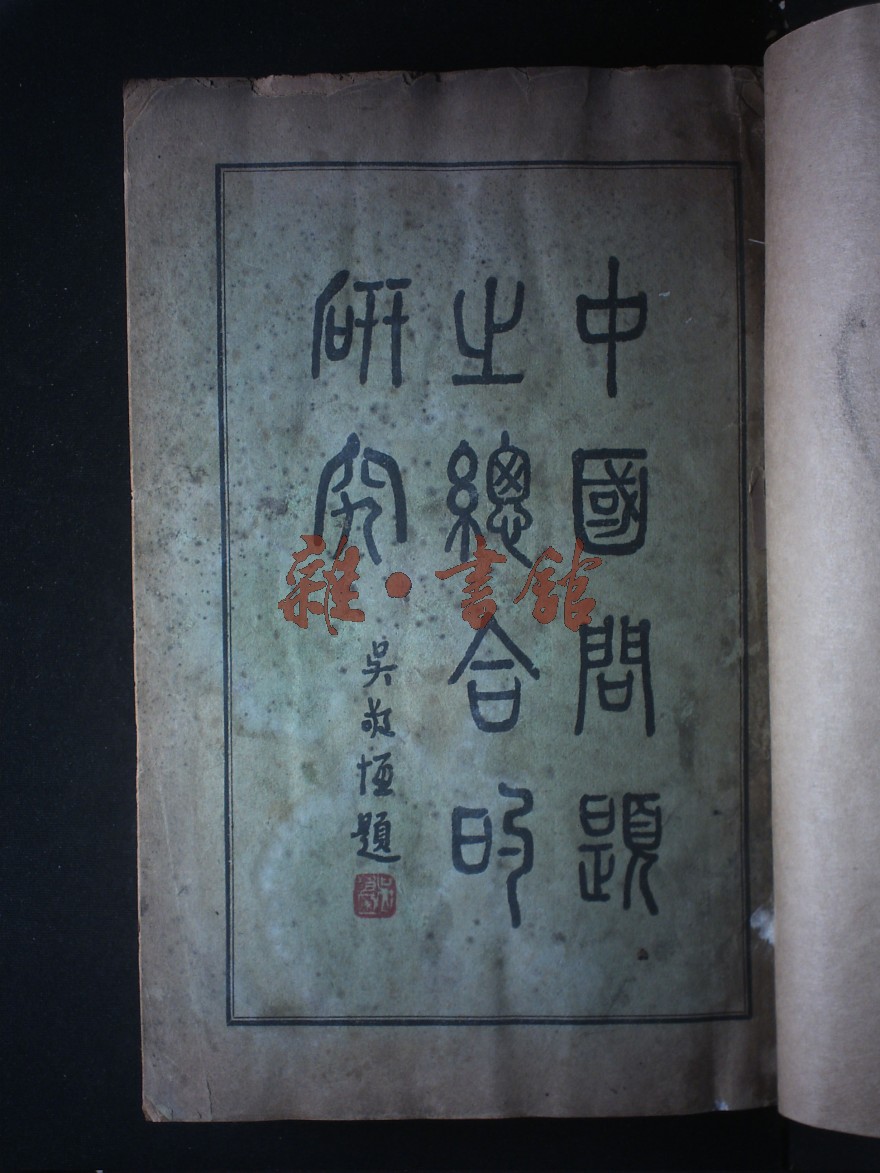 中國問題
之總合的
研究
吳敬恆題
雜·書館